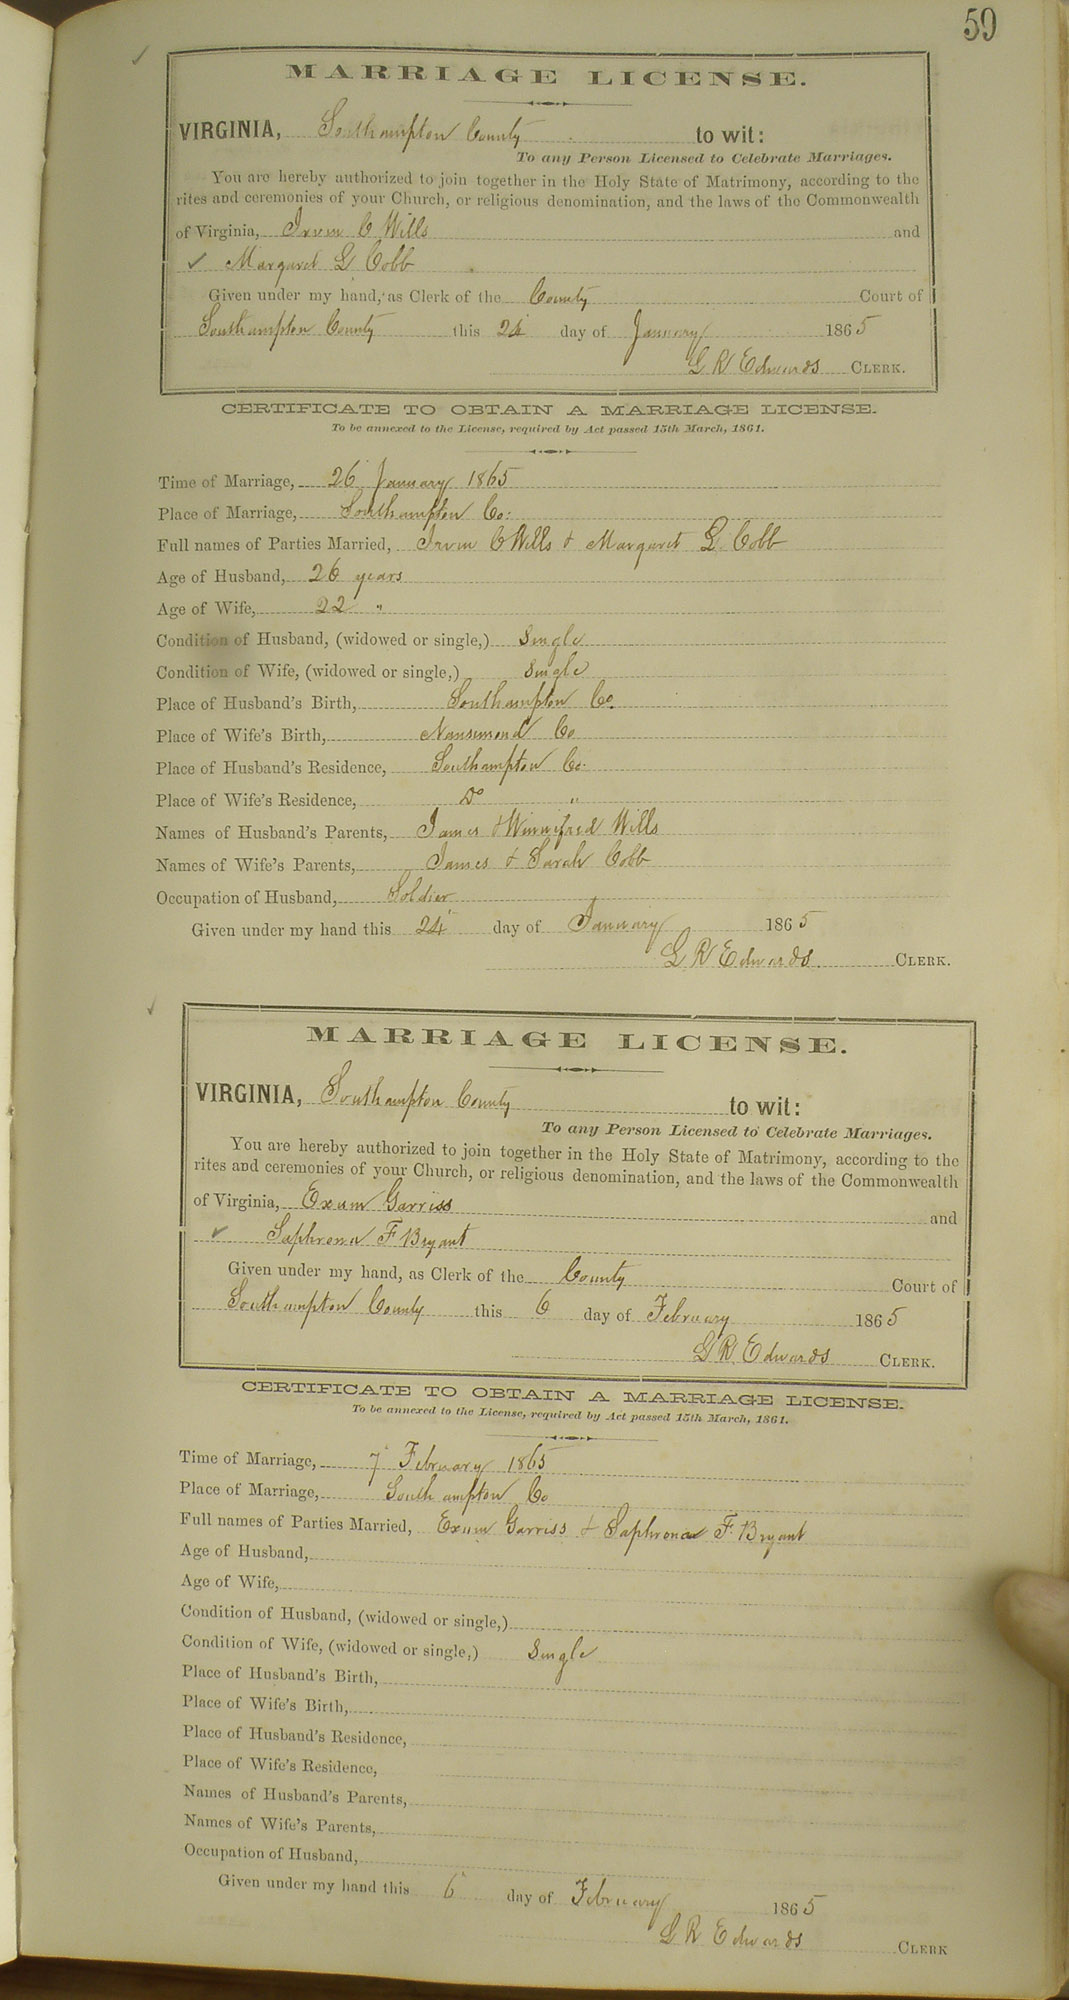 59
MARRIAGE LICENSE.
VIRGINIA, Southampton County to wit:
To any Person Licensed to Celebrate Marriages.
You are hereby authorized to join together in the Holy State of Matrimony, according to the
rites and ceremonies of your Church, or religious denomination, and the laws of the Commonwealth
of Virginia, Irvin C Wills and
✓ Margaret G Cobb
Given under my hand, as Clerk of the County Court of
Southampton County this 24 day of January 1865
G R Edwards CLERK.
CERTIFICATE TO OBTAIN A MARRIAGE LICENSE.
To be annexed to the License, required by Act passed 15th March, 1861.
Time of Marriage, 26 January 1865
Place of Marriage, Southampton Co:
Full names of Parties Married, Irvin C Wills & Margaret G. Cobb
Age of Husband, 26 years
Age of Wife, 22 "
Condition of Husband, (widowed or single,) Single
Condition of Wife, (widowed or single,) Single
Place of Husband's Birth, Southampton Co.
Place of Wife's Birth, Nansemond Co
Place of Husband's Residence, Southampton Co.
Place of Wife's Residence, Do "
Names of Husband's Parents, James & Winnifred Wills
Names of Wife's Parents, James & Sarah Cobb
Occupation of Husband, Soldier
Given under my hand this 24 day of January 1865
G R Edwards CLERK.
MARRIAGE LICENSE.
VIRGINIA, Southampton County to wit:
To any Person Licensed to Celebrate Marriages.
You are hereby authorized to join together in the Holy State of Matrimony, according to the
rites and ceremonies of your Church, or religious denomination, and the laws of the Commonwealth
of Virginia, Exum Garriss and
✓ Saphrona F Bryant
Given under my hand, as Clerk of the County Court of
Southampton County this 6 day of February 1865
G R Edwards CLERK.
CERTIFICATE TO OBTAIN A MARRIAGE LICENSE.
To be annexed to the License, required by Act passed 15th March, 1861.
Time of Marriage, 7 February 1865
Place of Marriage, Southampton Co
Full names of Parties Married, Exum Garriss & Saphrona F. Bryant
Age of Husband,
Age of Wife,
Condition of Husband, (widowed or single,)
Condition of Wife, (widowed or single,) Single
Place of Husband's Birth,
Place of Wife's Birth,
Place of Husband's Residence,
Place of Wife's Residence,
Names of Husband's Parents,
Names of Wife's Parents,
Occupation of Husband,
Given under my hand this 6 day of February 1865
G R Edwards CLERK